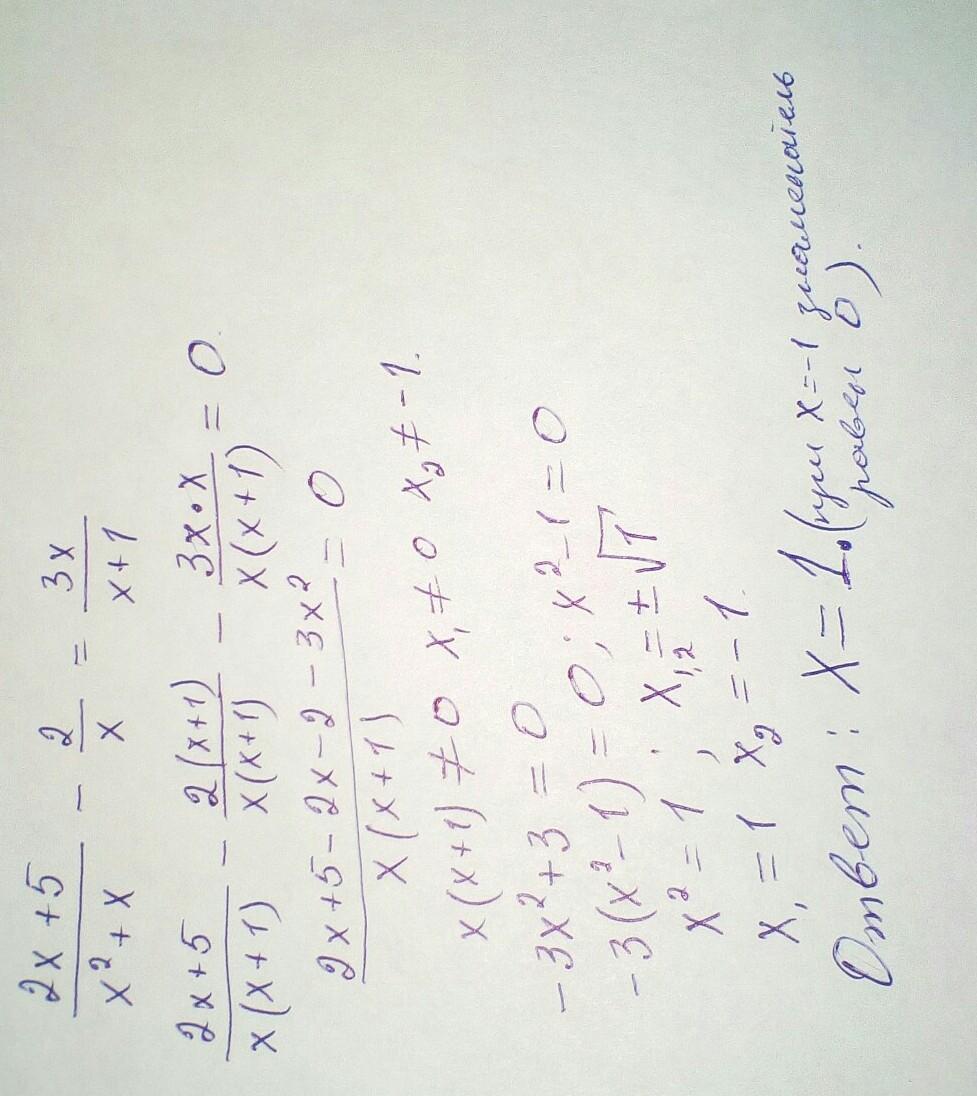 (2x+5)/(x²+x) - 2/x = 3x/(x+1)
(2x+5)/(x(x+1)) - 2(x+1)/(x(x+1)) - 3x·x/(x(x+1)) = 0.
(2x+5-2x-2-3x²)/(x(x+1)) = 0
x(x+1)≠0 x₁≠0 x₂≠-1.
-3x²+3=0
-3(x²-1)=0; x²-1=0
x²=1; x₁,₂=±√1
x₁=1 x₂=-1.
Ответ: x=1. (при x=-1 знаменатель
равен 0).